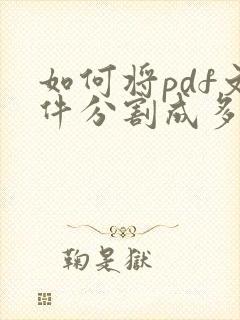 如何将pdf文
件分割成多
鞠是獄